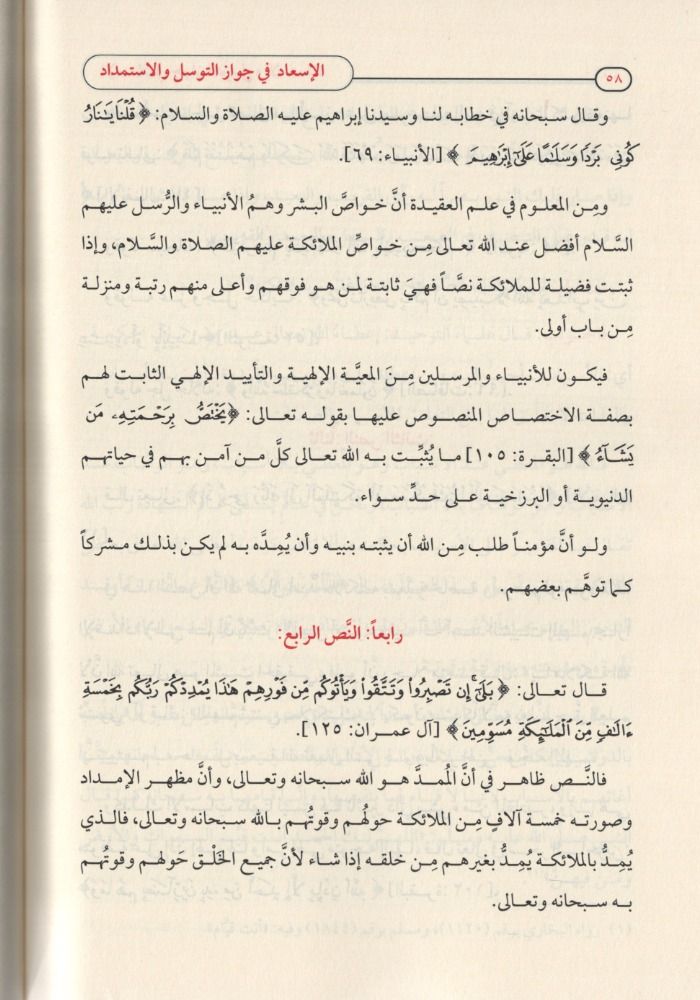 ٥٨
الإسعاد في جواز التوسل والاستمداد
وقال سبحانه في خطابه لنا وسيدنا إبراهيم عليه الصلاة والسلام: ﴿قُلْنَا يَٰنَارُ
كُونِي بَرْدًا وَسَلَٰمًا عَلَىٰٓ إِبْرَٰهِيمَ﴾ [الأنبياء: ٦٩].
ومِن المعلوم في علم العقيدة أنَّ خواصَّ البشر وهمُ الأنبياء والرُّسل عليهم
السَّلام أفضل عند الله تعالى مِن خواصِّ الملائكة عليهم الصلاة والسَّلام، وإذا
ثبتت فضيلة للملائكة نصَّاً فهيَ ثابتة لمن هو فوقهم وأعلى منهم رتبة ومنزلة
مِن باب أولى.
فيكون للأنبياء والمرسلين مِنَ المعيَّة الإلهية والتأييد الإلهي الثابت لهم
بصفة الاختصاص المنصوص عليها بقوله تعالى: ﴿يَخْتَصُّ بِرَحْمَتِهِۦ مَن
يَشَآءُ﴾ [البقرة: ١٠٥] ما يُثبِّت به الله تعالى كلَّ من آمن بهم في حياتهم
الدنيوية أو البرزخية على حدِّ سواء.
ولو أنَّ مؤمناً طلب مِن الله أن يثبته بنبيه وأن يُمِدَّه به لم يكن بذلك مشركاً
كما توهَّم بعضهم.
رابعاً: النَّص الرابع:
قال تعالى: ﴿بَلَىٰٓ إِن تَصْبِرُواْ وَتَتَّقُواْ وَيَأْتُوكُم مِّن فَوْرِهِمْ هَٰذَا يُمْدِدْكُمْ رَبُّكُم بِخَمْسَةِ
ءَالَٰفٍ مِّنَ ٱلْمَلَٰٓئِكَةِ مُسَوِّمِينَ﴾ [آل عمران: ١٢٥].
فالنَّص ظاهر في أنَّ المُمدَّ هو الله سبحانه وتعالى، وأنَّ مظهر الإمداد
وصورته خمسة آلافٍ مِن الملائكة حولُهم وقوتُهم بالله سبحانه وتعالى، فالذي
يُمِدُّ بالملائكة يُمِدُّ بغيرهم مِن خلقه إذا شاء لأنَّ جميع الخَلْق حولهم وقوتُهم
به سبحانه وتعالى.